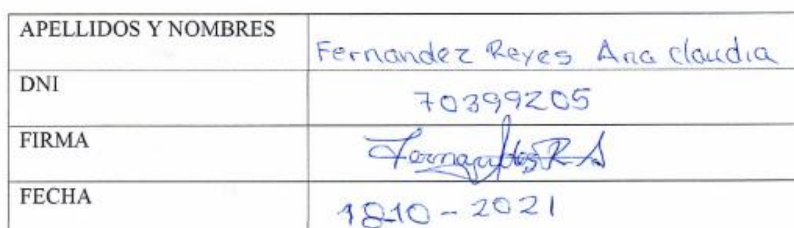 APELLIDOS Y NOMBRES
Fernandez Reyes Ana claudia
DNI
70399205
FIRMA
FECHA
1810-2021